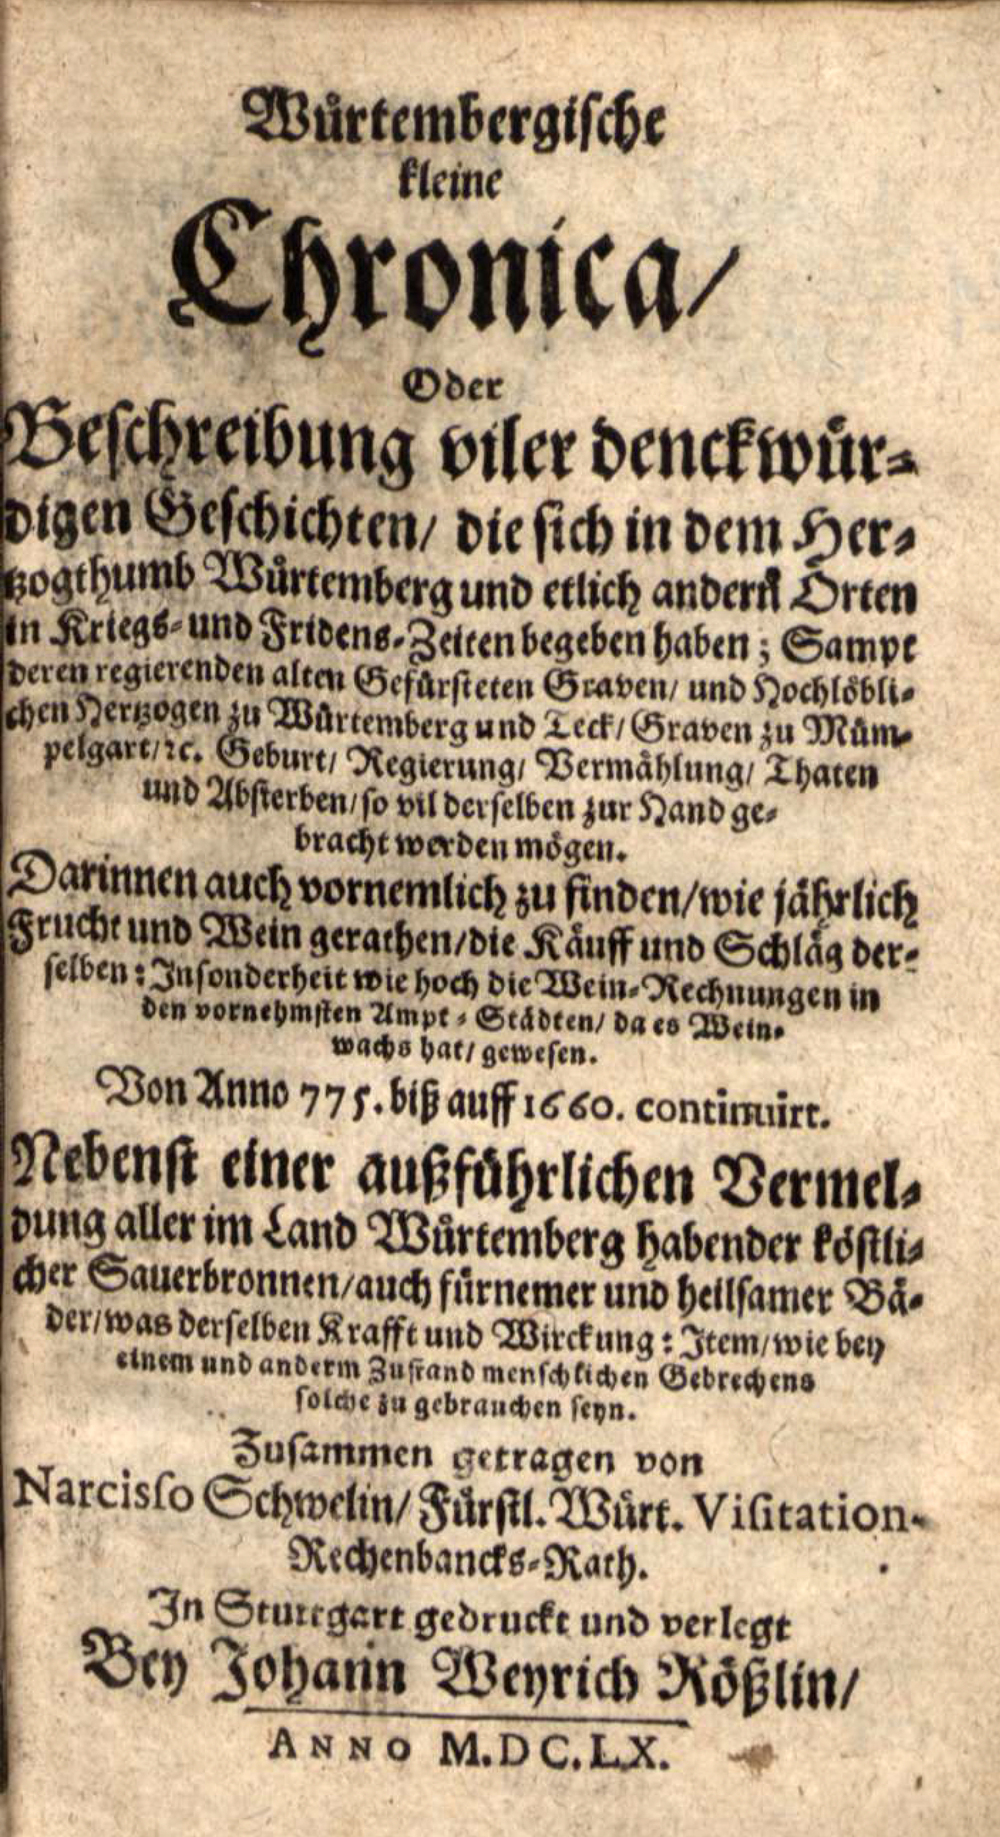 Würtembergische
kleine
Chronica/
Oder
Beschreibung viler denckwür-
digen Geschichten/ die sich in dem Her-
tzogthumb Würtemberg und etlich andern Orten
in Kriegs- und Fridens-Zeiten begeben haben; Sampt
deren regierenden alten Gefürsteten Graven/ und Hochlöbli-
chen Hertzogen zu Würtemberg und Teck/ Graven zu Müm-
pelgart/ ꝛc. Geburt/ Regierung/ Vermählung/ Thaten
und Absterben/ so vil derselben zur Hand ge-
bracht werden mögen.
Darinnen auch vornemlich zu finden/ wie jährlich
Frucht und Wein gerathen/ die Käuff und Schläg der-
selben: Insonderheit wie hoch die Wein-Rechnungen in
den vornehmsten Ampt-Städten/ da es Wein-
wachs hat/ gewesen.
Von Anno 775. biß auff 1660. continuirt.
Nebenst einer außführlichen Vermel-
dung aller im Land Würtemberg habender köstli-
cher Sauerbronnen/ auch fürnemer und heilsamer Bä-
der/ was derselben Krafft und Wirckung: Item/ wie bey
einem und anderm Zustand menschlichen Gebrechens
solche zu gebrauchen seyn.
Zusammen getragen von
Narcisso Schwelin/ Fürstl. Würt. Visitation-
Rechenbancks-Rath.
In Stuttgart gedruckt und verlegt
Bey Johann Weyrich Rößlin/
ANNO M.DC.LX.